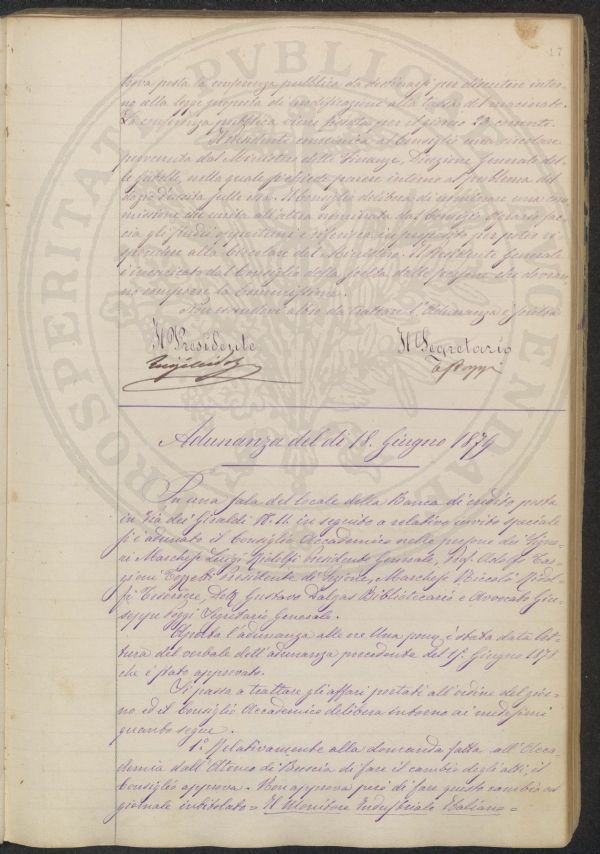 17
posta la conferenza pubblica da destinarsi per discutere intor-
no alla legge proposta di modificazione alla tassa del macinato.
La conferenza pubblica viene fissata per il giorno 23 corrente.
Il Presidente comunica al Consiglio una circolare
pervenuta dal Ministero delle Finanze, Direzione Generale del-
le Gabelle, nella quale si chiede parere intorno al problema del
dazio d'uscita sulle Il Consiglio delibera di nominare una com-
missione che unita all'altra nominata dal Consiglio fac-
cia gli studi opportuni e riferisca in proposito per poter ri-
spondere alla Circolare del Ministero. Il Presidente Generale
è incaricato dal Consiglio della scelta delle persone che dovran-
no comporre la Commissione.
Non essendovi altro da trattare l'Adunanza è sciolta
Il Presidente Il Segretario
Adunanza del dì 18. Giugno 1879
In una sala del locale della Banca di credito posta
in Via dei Giraldi N. 11. in seguito a relativo invito speciale
si è adunato il Consiglio Accademico nelle persone dei Signo-
ri Marchese Luigi Ridolfi Presidente Generale, Prof. Adolfo Tar-
gioni Tozzetti Presidente di Sezione, Marchese Niccolò Ridol-
fi Tesoriere, Dott. Gustavo Dalgas Bibliotecario e Avvocato Giu-
seppe Poggi Segretario Generale.
Aperta l'adunanza alle ore Una pom. è stata data let-
tura del verbale dell'adunanza precedente del 15. Giugno 1878
che è stato approvato.
Si passa a trattare gli affari portati all'ordine del gior-
no ed il Consiglio Accademico delibera intorno ai medesimi
quanto segue.
1.° Relativamente alla domanda fatta all'Acca-
demia dall'Ateneo di Brescia di fare il cambio degli atti, il
Consiglio approva. Non approva però di fare questo cambio col
giornale intitolato = Il Monitore Industriale Italiano =